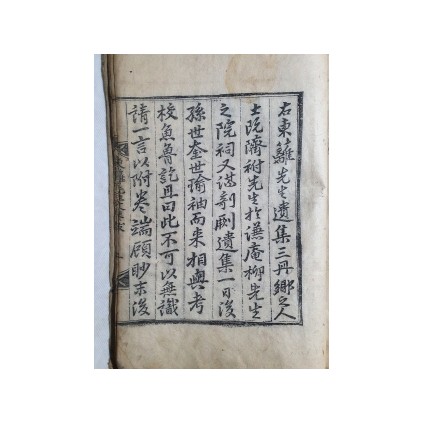 右東蘺先生遺集三冊鄉之人
士旣躋祔先生於謙庵柳先生
之院祠又謀剞劂遺集一日後
孫世奎世瑜袖而来相與考
校魚魯訖且曰此不可以無識
請一言以附卷端顧眇末後